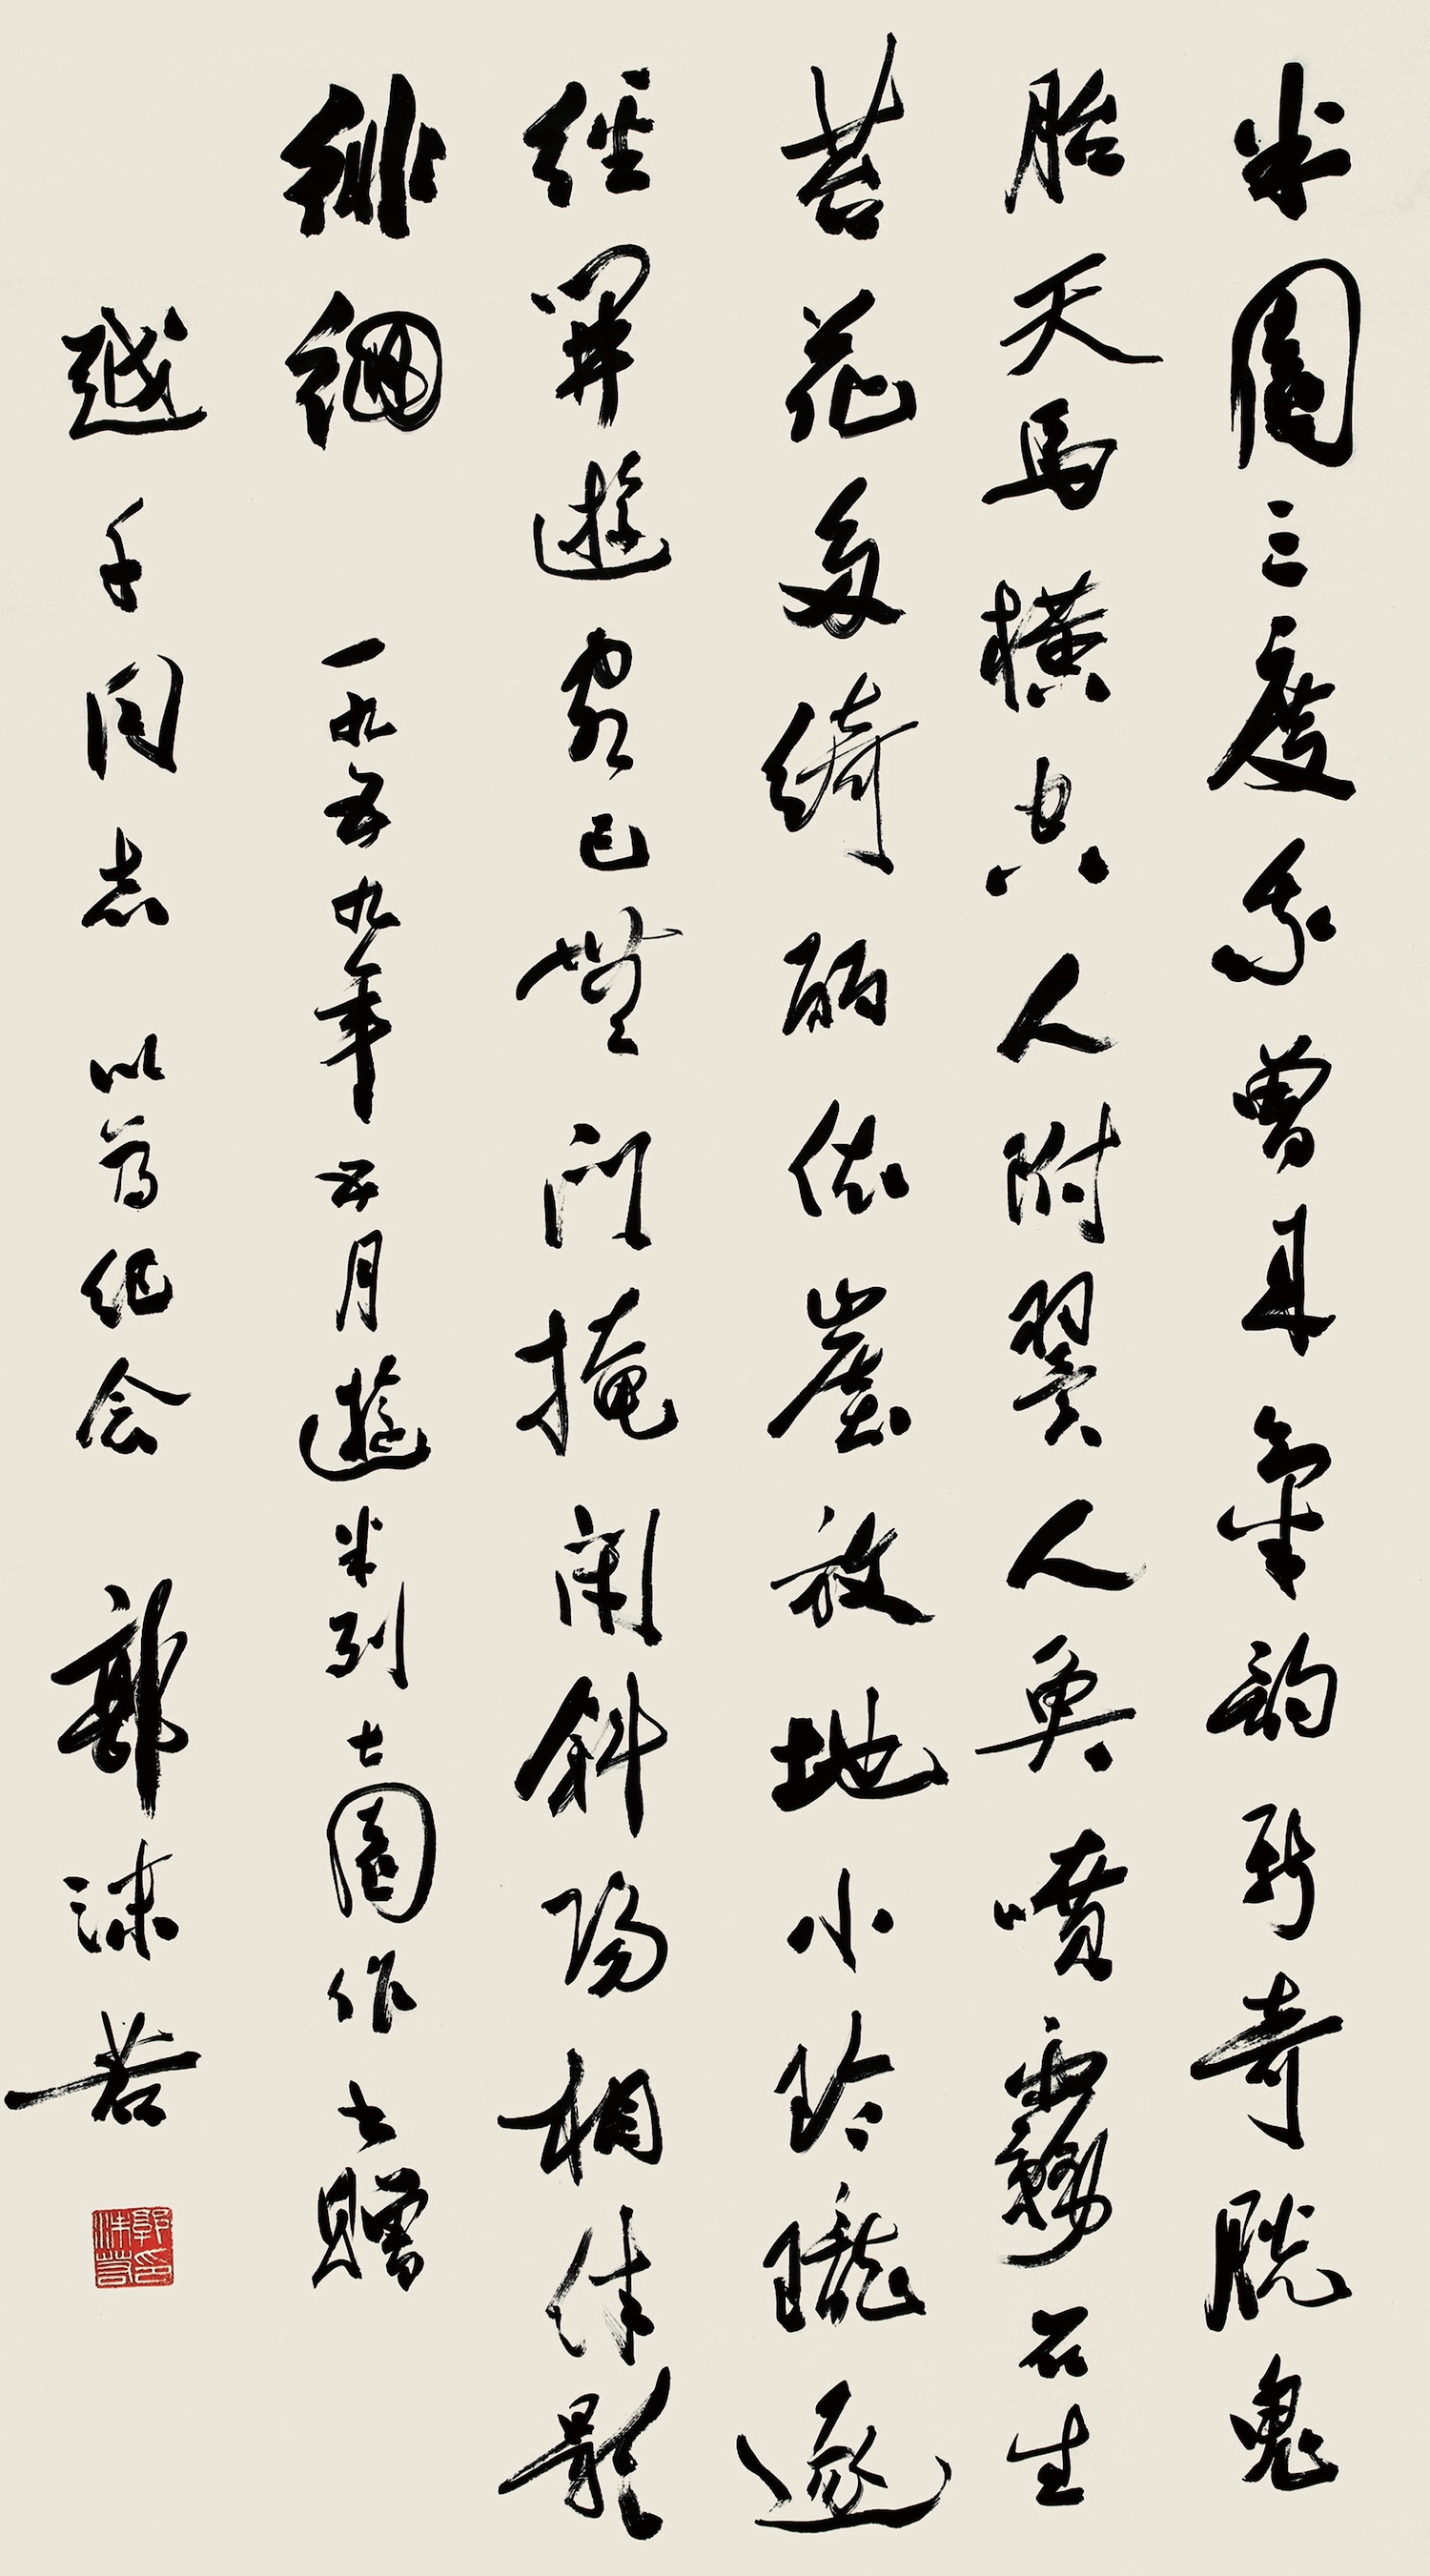 米園三度我曾来氣韵新奇脱鬼
胎天馬横空人附翼人魚噴霧石生
苔花多綺丽依崖放地小玲瓏逐
徑開遊客已無門掩閉斜陽相伴影
徘徊 一九五九年五月遊米列士園作書贈
越千同志 以为纪念 郭沫若
郭沫若印